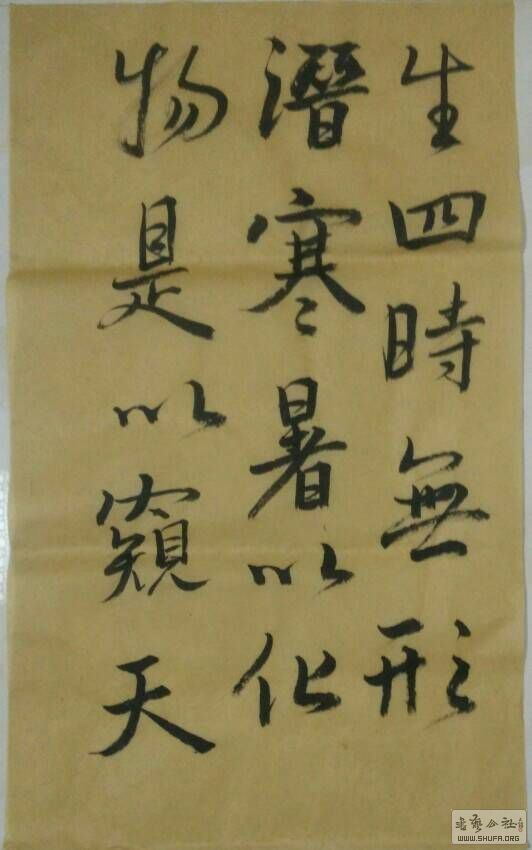 生四時無形
潛寒暑以化
物是以窺天
书艺公社
WWW.SHUFA.ORG